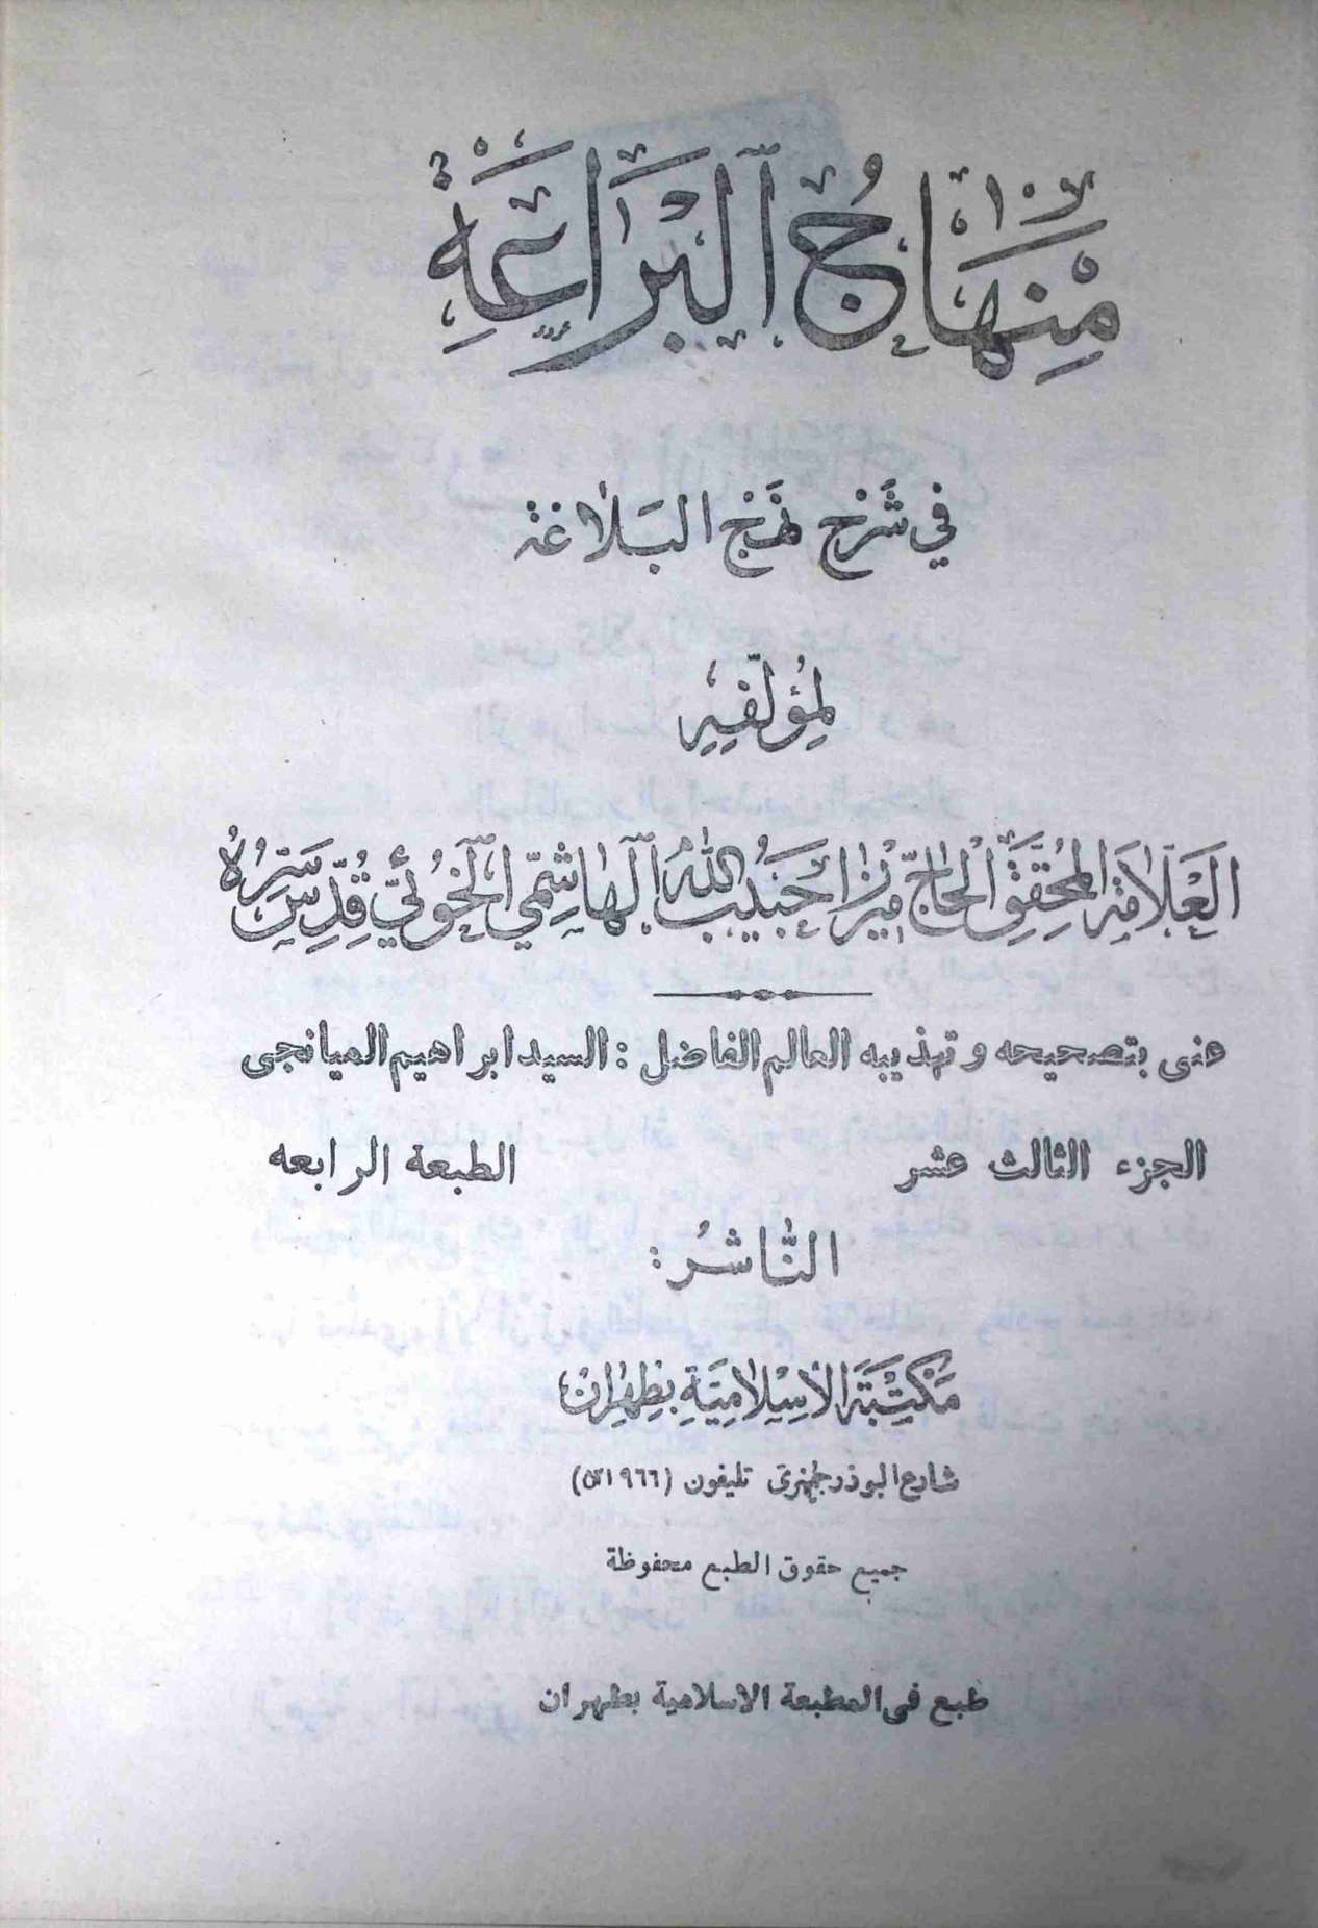 مِنْهَاجُ الْبَرَاعَةِ
في شَرْحِ نَهْجِ البَلاغَةِ
لِمُؤَلِّفِهِ
العَلّامَةِ المُحَقِّقِ الحَاجّ مِيرْزا حَبيبِ اللهِ الهاشِمِيّ الخُوئيّ قُدِّسَ سِرُّهُ
عنى بتصحيحه و تهذيبه العالم الفاضل : السيد ابراهيم الميانجى
الجزء الثالث عشر الطبعة الرابعه
النّاشرُ :
مَكْتَبَةُ الاسْلامِيَّةِ بِطِهرانَ
شارع البوذرجمهرى تليفون (٥٢١٩٦٦)
جميع حقوق الطبع محفوظة
طبع فى المطبعة الاسلامية بطهران